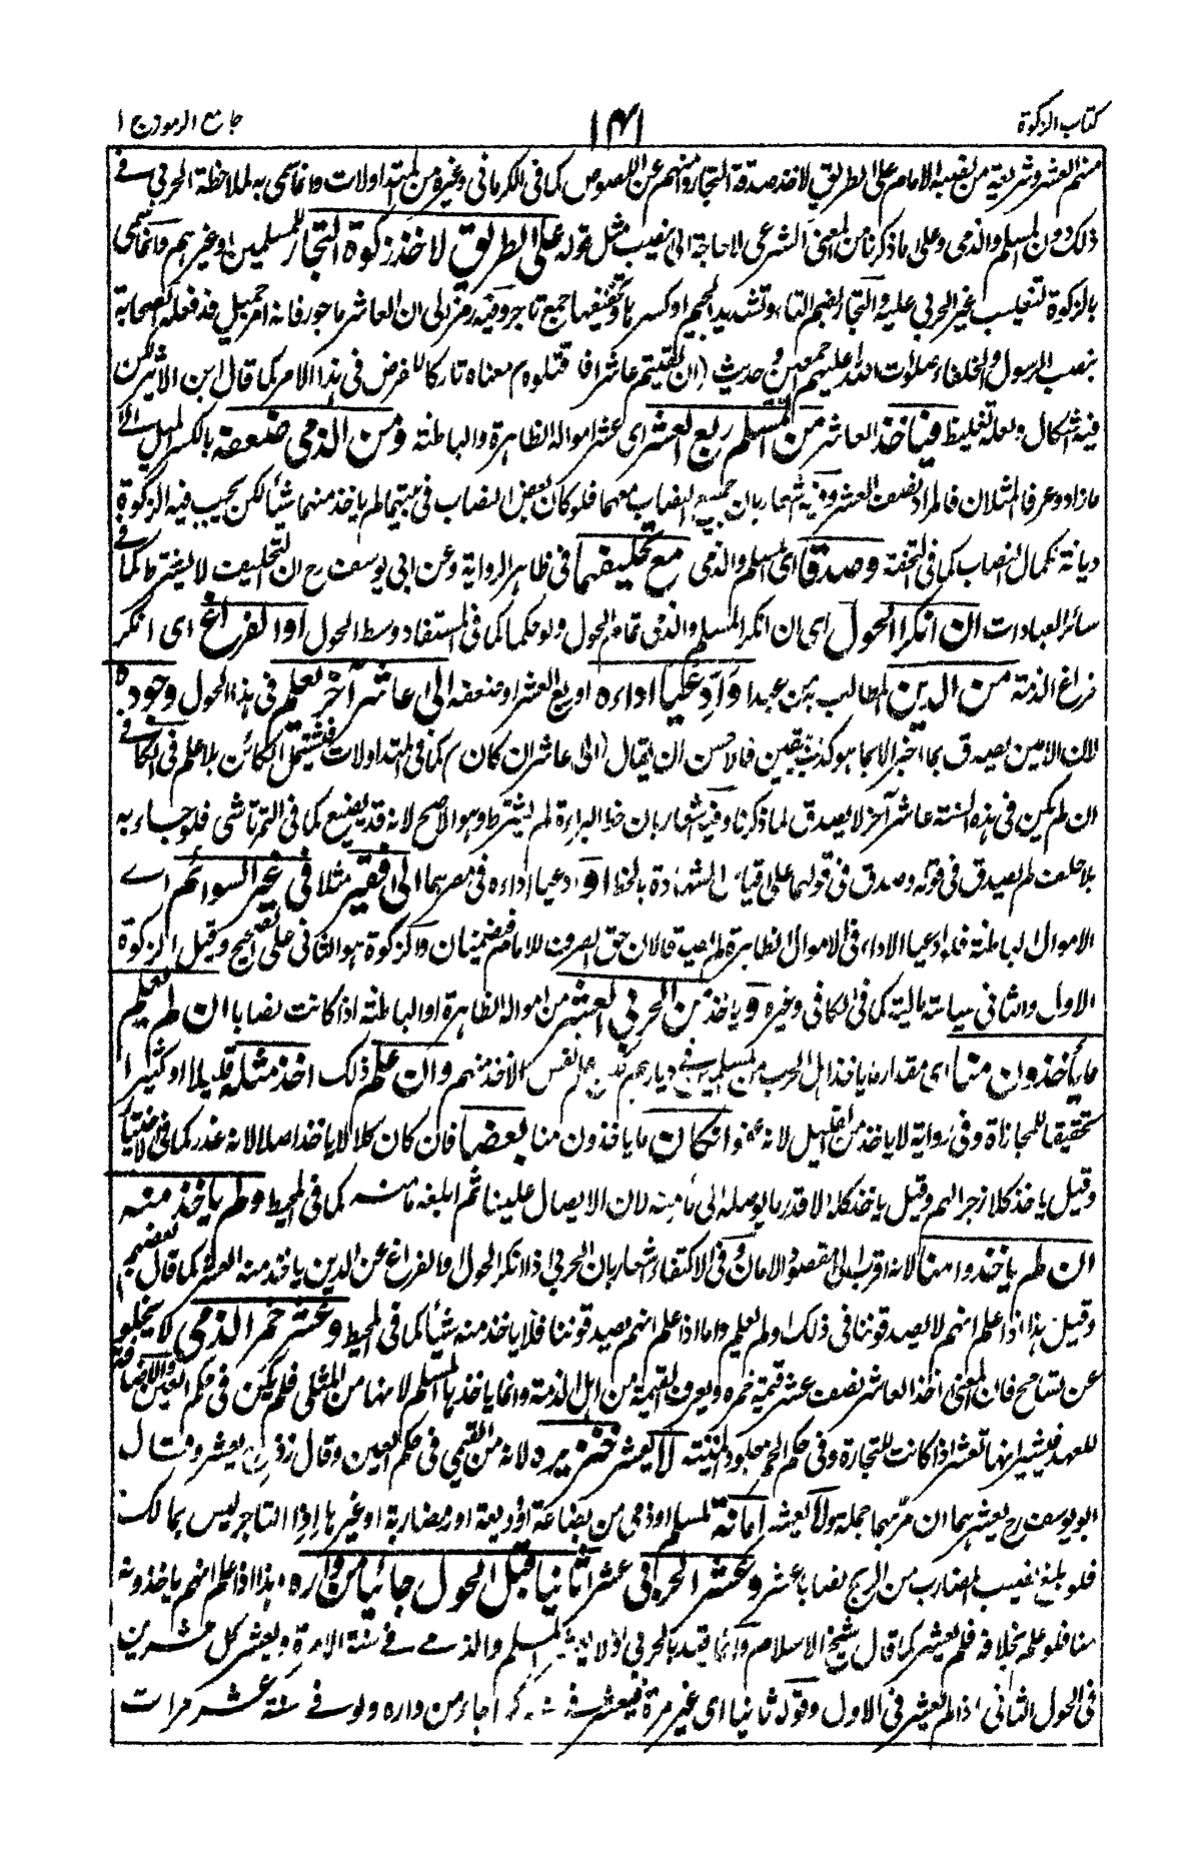 كتاب الزكوة
١٤١
جامع الرموز ج ١
منهم العشر وشريعة من نصبه الامام على الطريق لاخذ صدقة التجار وامنهم عن اللصوص كما فى الكرمانى وغيره من المتداولات وانما سمى به لملاحظة الحربى فے
ذلك دون المسلم والذمى وعلى ما ذكرنا من المعنى الشرعى لا حاجة الى نصب مثل قوله على الطريق لاخذ زكوة التجار للمسلمين او غيرهم وانما سمى
بالزكوة لتغليب غير الحربى عليه والتجار بضم التاء وتشديد الجيم او كسرها وتخفيفها جمع تاجر وفيه رمز الى ان العاشر ماجور فانه امر جميل قد فعله الصحابة
بنصب الرسول والخلفاء صلوات الله عليهم اجمعين وحديث (ان لقيتم عاشرا فاقتلوه) معناه تاركا لفرض فى هذا الامر كما قال ابن الاثير لكن
فيه اشكال ولعله تغليظ فياخذ العاشر من المسلم ربع العشر اى عشر امواله الظاهرة والباطنة ومن الذمى ضعفه بالكسر المثل الى
ما زاد وعرفا المثلان فالمراد نصف العشر وفيه اشعار بان جميع النصاب معهما فلو كان بعض النصاب فى بيتهما لم ياخذ منهما شيأ لكن يجب فيه الزكوة
ديانة لكمال النصاب كما فى التحفة وصدقا اى المسلم والذمى مع تحليفهما فى ظاهر الرواية وعن ابى يوسف رح ان التحليف لا يشترط كما فے
سائر العبادات ان انكرا الحول اى ان انكر المسلم والذمى تمام الحول ولو حكما كما فى المستفاد وسط الحول او الفراغ اى انكر
فراغ الذمة من الدين المطالب من عبد او ادعيا اداءه او ربع العشر او ضعفه الى عاشر آخر يعلم فى هذا الحول وجوده
لان الامين يصدق بما اخبر الا بما هو كذب بيقين فالاحسن ان يقال (الى عاشر ان كان) كما فى المتداولات فيشتمل الكائن بلا علم فى الكافے
ان لم يكن فى هذه السنة عاشر آخر لا يصدق لما ذكرنا وفيه اشعار بان خط البراءة لم يشترط وهو الاصح لانه قد يضيع كما فى التمرتاشى فلو جاء به
بلا حلف لم يصدق فى قوله وصدق فى قولهما على قياس الشهادة بالخط او ادعيا اداءه فى مصرهما الى فقير مثلا فى غير السوائم اے
الاموال الباطنة فلو ادعيا الاداء فى الاموال الظاهرة لم يصدقا لان حق الصرف للامام فيضمنان والزكوة هو الثانى على الصحيح وقيل الزكوة
الاول والثانى سياسة مالية كما فى الكافى وغيره و ياخذ من الحربى العشر من امواله الظاهرة او الباطنة اذا كانت نصابا ان لم يعلم
ما ياخذون منا اى مقدار ما ياخذ اهل الحرب من المسلمين فى ديارهم مع علم نفس الاخذ منهم وان علم ذلك اخذ مثله قليلا او كثيرا
تحقيقا للمجازاة وفى رواية لا ياخذ من القليل لانه عفو ان كان ما ياخذون منا بعضا فان كان كلا لا ياخذ اصلا لانه غدر كما فى الاختيار
وقيل ياخذ كلا زجرا لهم وقيل ياخذ كله الا قدر ما يوصله الى مأمنه لان الايصال علينا ثم ابلغه مأمنه كما فى المحيط ولم ياخذ منه
ان لم ياخذوا منا لانه اقرب الى مقصود الامان وفى الاكتفاء اشعار بان الحربى اذا انكر الحول والفراغ عن الدين ياخذ منه العشر كما قال بعضهم
وقيل هذا اذا علم انهم لا يصدقوننا فى ذلك او لم يعلم واما اذا علم انهم يصدقوننا فلا ياخذ منه شيأ كما فى المحيط وعشر خمر الذمى لا يخلو
عن تسامح فان المعنى اخذ العاشر نصف عشر قيمة خمره ويعرف القيمة من اهل الذمة وانما ياخذها المسلم لانها من المثلى فلم يكن فى حكم العين والاضافة
للعهد فيشير انها تعشر اذا كانت للتجارة وفى حكم الخمر جلود الميتة لا يعشر خنزيره لانه من القيمى فى حكم العين وقال زفر رح يعشر وقال
ابو يوسف رح يعشرهما ان مر بهما جملة ولا يعشر امانة لمسلم او ذمى من بضاعة او وديعة او مضاربة او غيرها اذا التاجر ليس بمالك
فلو بلغ نصيب المضارب من الربح نصابا عشر وعشر الحربى عشرا ثانيا قبل الحول جائيا من داره هذا اذا علم انهم ياخذونه
منا فلو علم بخلافه فلم يعشر كما قال شيخ الاسلام وانما قيد بالحربى اذ لا يعشر المسلم والذمے فے سنة الا مرة ويعشر كل مرتين
فى الحول الثانى اذا لم يعشر فى الاول وقوله ثانيا اى غير مرة فيعشر جاء من داره ولو فے سنة عشر مرات